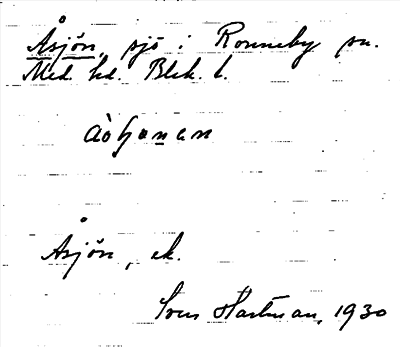 Åsjön, sjö i Ronneby sn.
Med. hd. Blek. l.
Åsjön, ek.
Sven Hartman, 1930